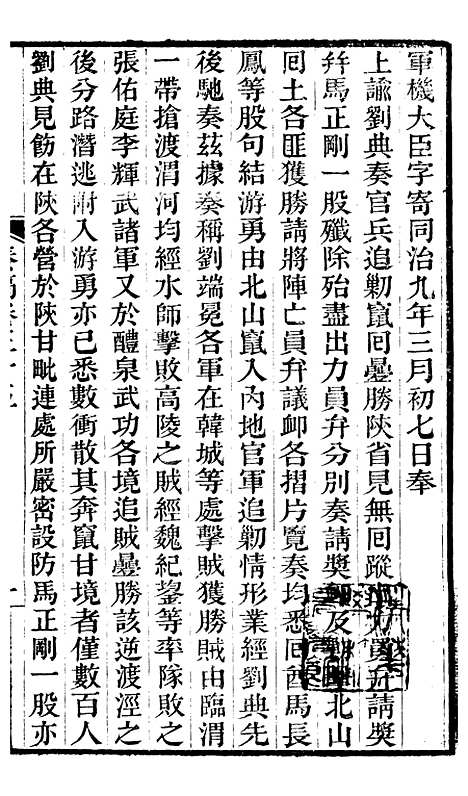 軍機大臣字寄同治九年三月初七日奉
上諭劉典奏官兵追勦竄囘曡勝陝省見無囘蹤員弁請獎
幷馬正剛一股殲除殆盡出力員弁分別奏請獎及北山
囘土各匪獲勝請將陣亡員弁議卹各摺片覽奏均悉囘酋馬長
鳳等股句結游勇由北山竄入內地官軍追勦情形業經劉典先
後馳奏茲據奏稱劉端冕各軍在韓城等處擊賊獲勝賊由臨渭
一帶搶渡渭河均經水師擊敗高陵之賊經魏紀鋆等率隊敗之
張佑庭李輝武諸軍又於醴泉武功各境追賊曡勝該逆渡涇之
後分路潛逃附入游勇亦已悉數衝散其奔竄甘境者僅數百人
劉典見飭在陝各營於陝甘毗連處所嚴密設防馬正剛一股亦